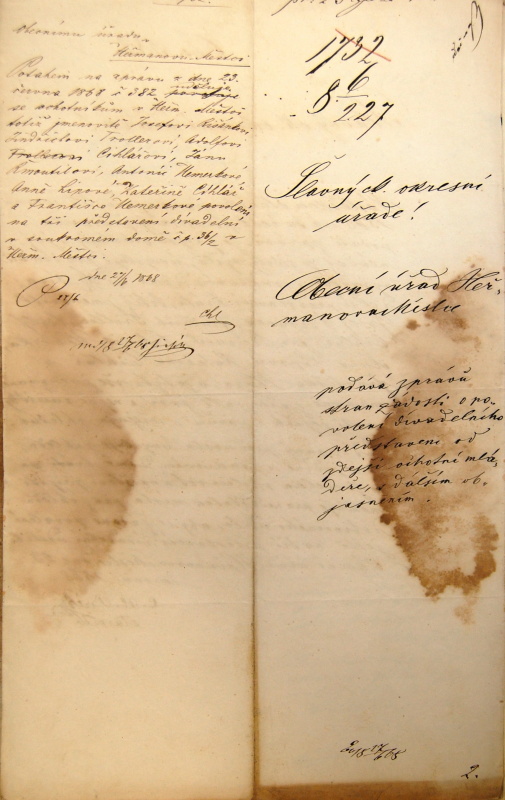 obecnímu úřadu
Heřmanově-Městci
Potahem na zprávu z dne 23.
června 1868 č 382
se ochotníkům v Heřm. Městci
totiž jmenovitě Josefovi
Jindřichovi Trollerovi, Adolfovi
Cihlářovi, Janu
Antonii Nemerkové
Anně Lipové, Kateřině Cihlář
a Františce Nemerkové povolení
na tři představení divadelní
v soukromém domě čp. 36/2 v
Heřm. Městci.
dne 27/6 1868
1732
6
8/227
Slavný c.k. okresní
úřade!
Obecní úřad Heř-
manova Městce
podává zprávu
stran žádosti o po-
volení divadelního
představení od
zdejší ochotní mlá-
deže, s dalším ob-
jasněním.
2.